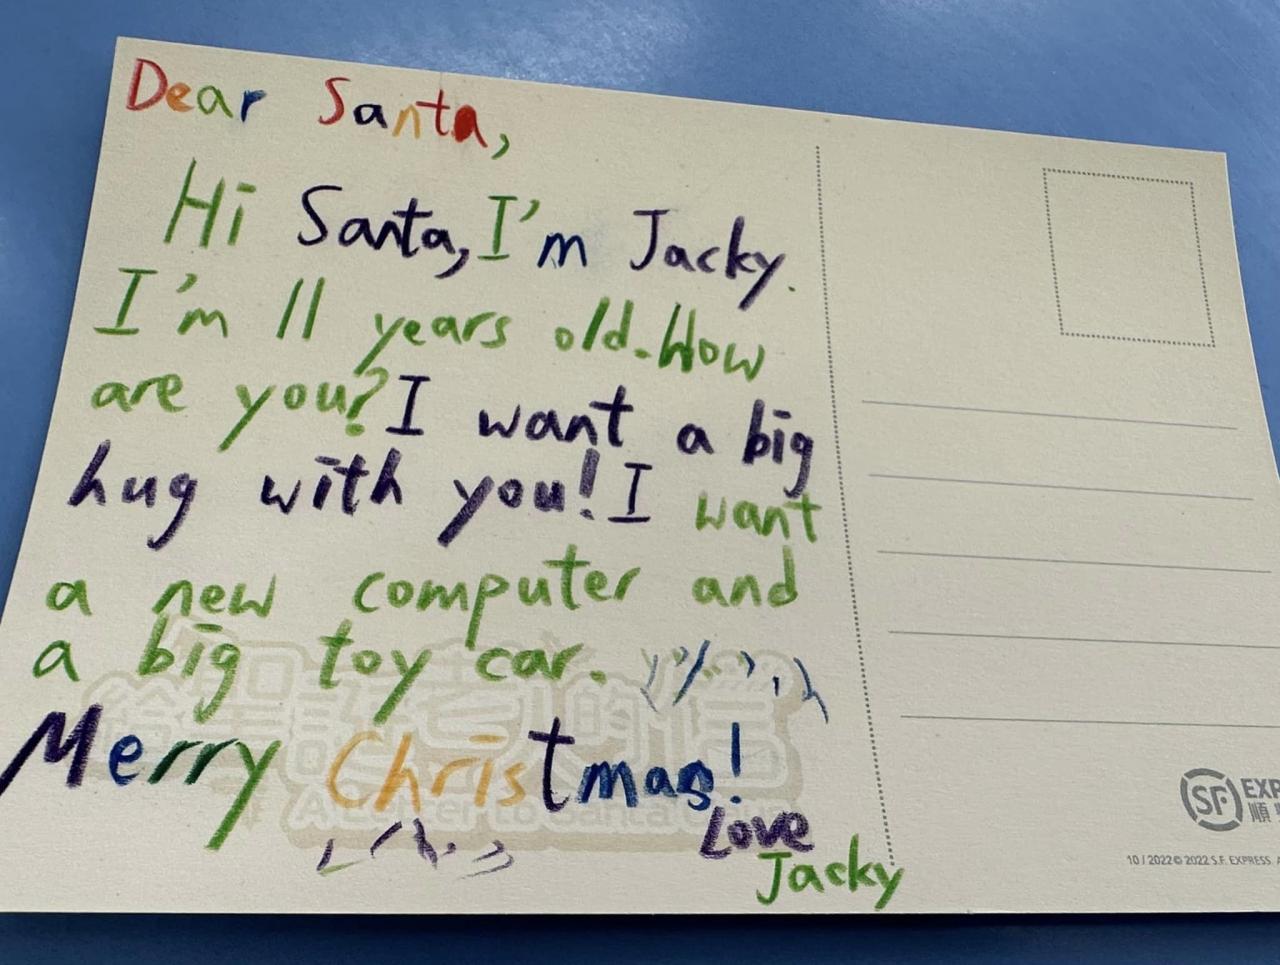 Dear Santa,
Hi Santa, I'm Jacky.
I'm 11 years old. How
are you? I want a big
hug with you! I want
a new computer and
a big toy car.
Merry Christmas!
Love
Jacky
給聖誕老人的信
A Letter to Santa Claus
SF EXP
順
10 / 2022 © 2022 S.F. EXPRESS. A